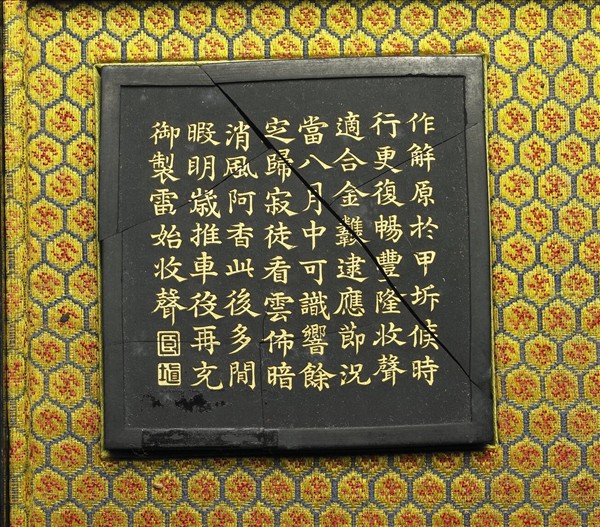 作解原於甲坼候時
行更復暢豐隆收聲
適合金龝逮應節況
當八月中可識響餘
㝎歸寂徒看雲佈暗
消風阿香此後多閒
暇明歲推車役再充
御製雷始收聲